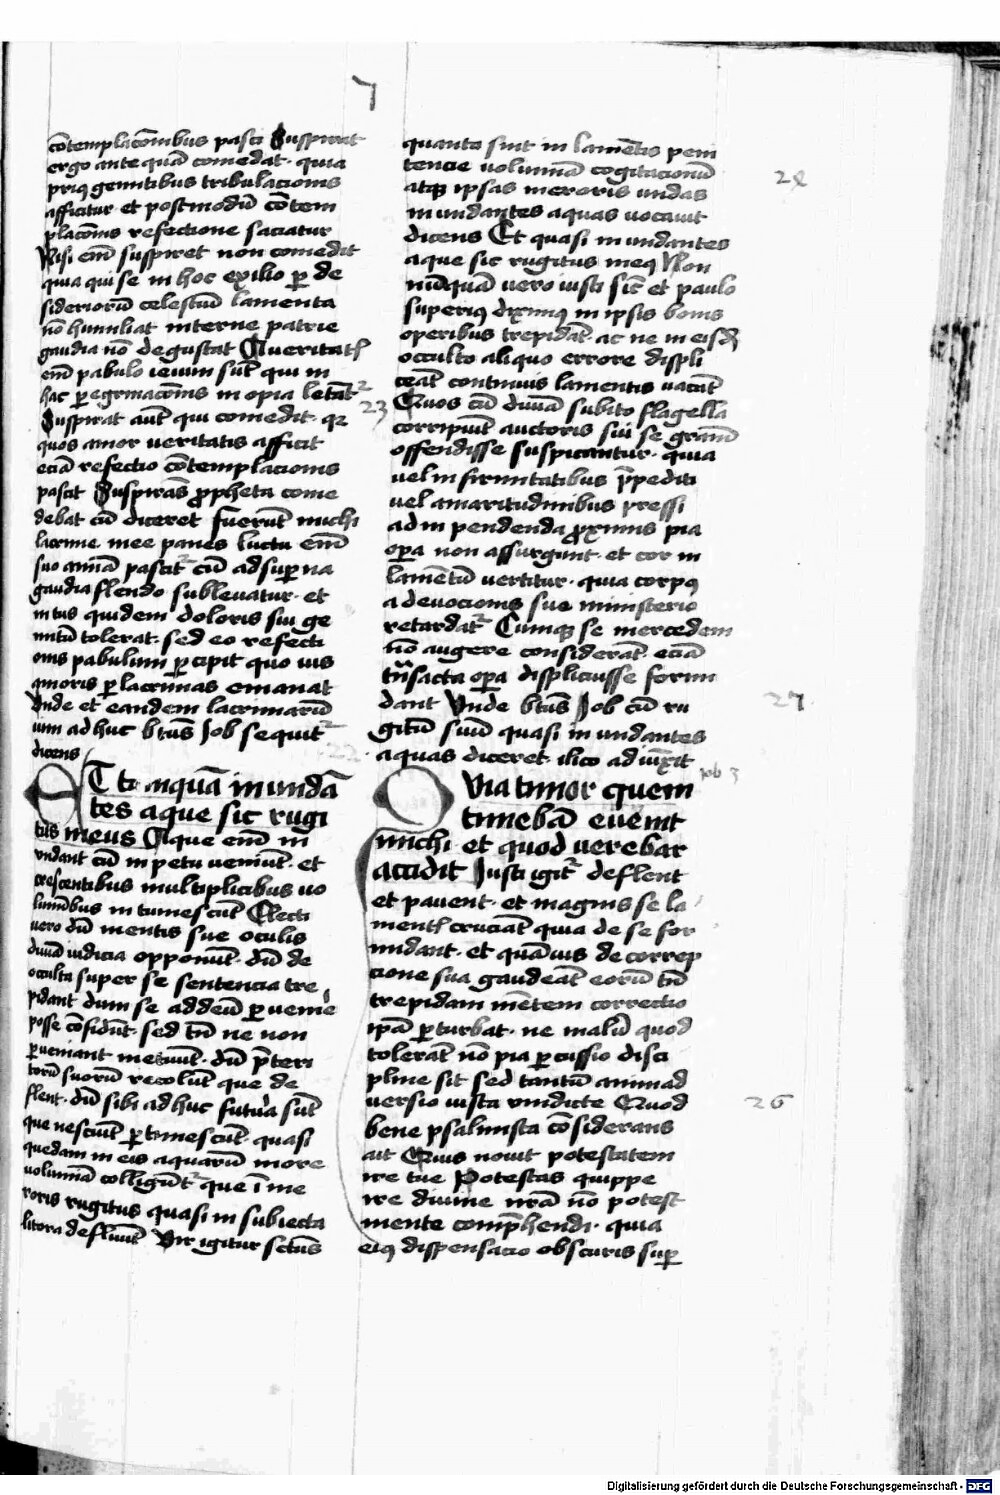 7
cōtemplacōnibus pasci Suspirat
ergo ante quā comedat · quia
priꝰ gemitibus tribulacionis
afficitur · et postmodū cōtem
placōnis refectione saciatur
Nisi em̄ suspiret non comedit
quia qui se in hoc exilio ꝑ de
sideriorū celestiū lamenta
nō humiliat interne patrie
gaudia nō degustat A veritatꝭ
em̄ pabulo ieiuni sūt qui in
hac ꝑegrinacōnis inopia letātᷣ
Suspirat aūt qui comedit · qꝛ
quos amor veritatis afficit
eciā refectio cōtemplacionis
pascit Suspirās ꝓpheta come
debat cū diceret fuerūt michi
lacrime mee panes luctu em̄
suo aīā pascitᷣ cū ad suꝑna
gaudia flendo subleuatur · et
intus quidem doloris sui ge
mitū tolerat · sed eo refecti
onis pabulum ꝑcipit quo vis
amoris ꝑ lacrimas emanat
Vnde et eandem lacrimarū
vim adhuc btūs Job sequitᷣ
dicens
ET tanquā inundā
tes aque sic rugi
tus meus Aque em̄ in
vndant cū inpetu veniūt · et
crescentibus multiplicibus vo
luminibus intumescūt Electi
vero dū mentis sue oculis
diuīa iudicia opponūt · dū de
occulta super se sentencia tre
pidant dum se ad deū ꝑuenire
posse cōfidūt · sed tn̄ ne non
ꝑueniant metuūt · dū p̄teri
torū suorū recolūt que de
flent · dū sibi adhuc futura sūt
que nesciūt ꝑtimescūt · quasi
quedam in eis aquarū more
volumīa colligūtᷣ que ī me
roris rugitus quasi in subiecta
litora defluūt Vir igitur sctūs
quanta sint in lamētis peni
tencie voluminā cogitacionū
atqꝫ ipsas meroris vndas
inundantes aquas vocauit
dicens Et quasi inundantes
aque sic rugitus meꝰ Non
nūquā vero iusti sic̄ et paulo
superiꝰ diximꝰ in ipsis bonis
operibus trepidāt · ac ne in eisdē
occulto aliquo errore displi
ceāt continuis lamentis vacāt
Quos cū diuīa subito flagella
corripiūt auctoris sui se graīā
offendisse suspicantur · quia
vel infirmitatibus p̄pediti
vel amaritudinibus pressi
ad inpendenda ꝓximis pia
oꝑa non assurgunt · et cor in
lamētū vertitur · quia corpꝰ
a deuocionis sue ministerio
retardatᷣ Cumqꝫ se mercedem
nō augere considerāt · eciā
trāsacta oꝑa displicuisse formi
dant Vnde btūs Job cū ru
gitū suū quasi inundantes
aquas diceret · ilico adiūxit
QVia timor quem
timebā euenit
michi · et quod verebar
accidit Justi igitᷣ deflent
et pauent · et magnis se la
mentꝭ cruciāt quia de se for
midant · et quāuis de correp
cione sua gaudeāt eorū tn̄
trepidam mētem correctio
ipā ꝑturbat · ne malū quod
tolerāt nō pia ꝑcussio disci
pline sit sed tantū animad
versio iusta vindicte Quod
bene psalmista cōsiderans
ait Quis nouit potestatem
ire tue Potestas quippe
ire diuine nrā nō potest
mente comp̄hendi · quia
eiꝰ dispensacio obscuris suꝑ
23
22
27
Job 3
26
Digitalisierung gefördert durch die Deutsche Forschungsgemeinschaft - DFG